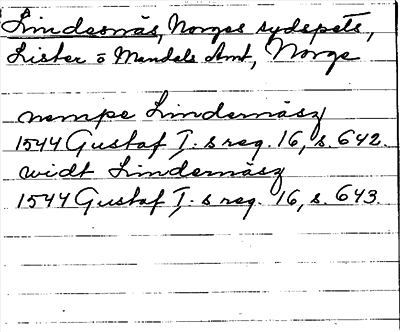 Lindesnäs, Norges sydspets,
Lister o Mandals Amt, Norge
nempe Lindernäsz
1544 Gustaf I:s reg. 16, s. 642.
widt Lindernäsz
1544 Gustaf I:s reg. 16, s. 643.